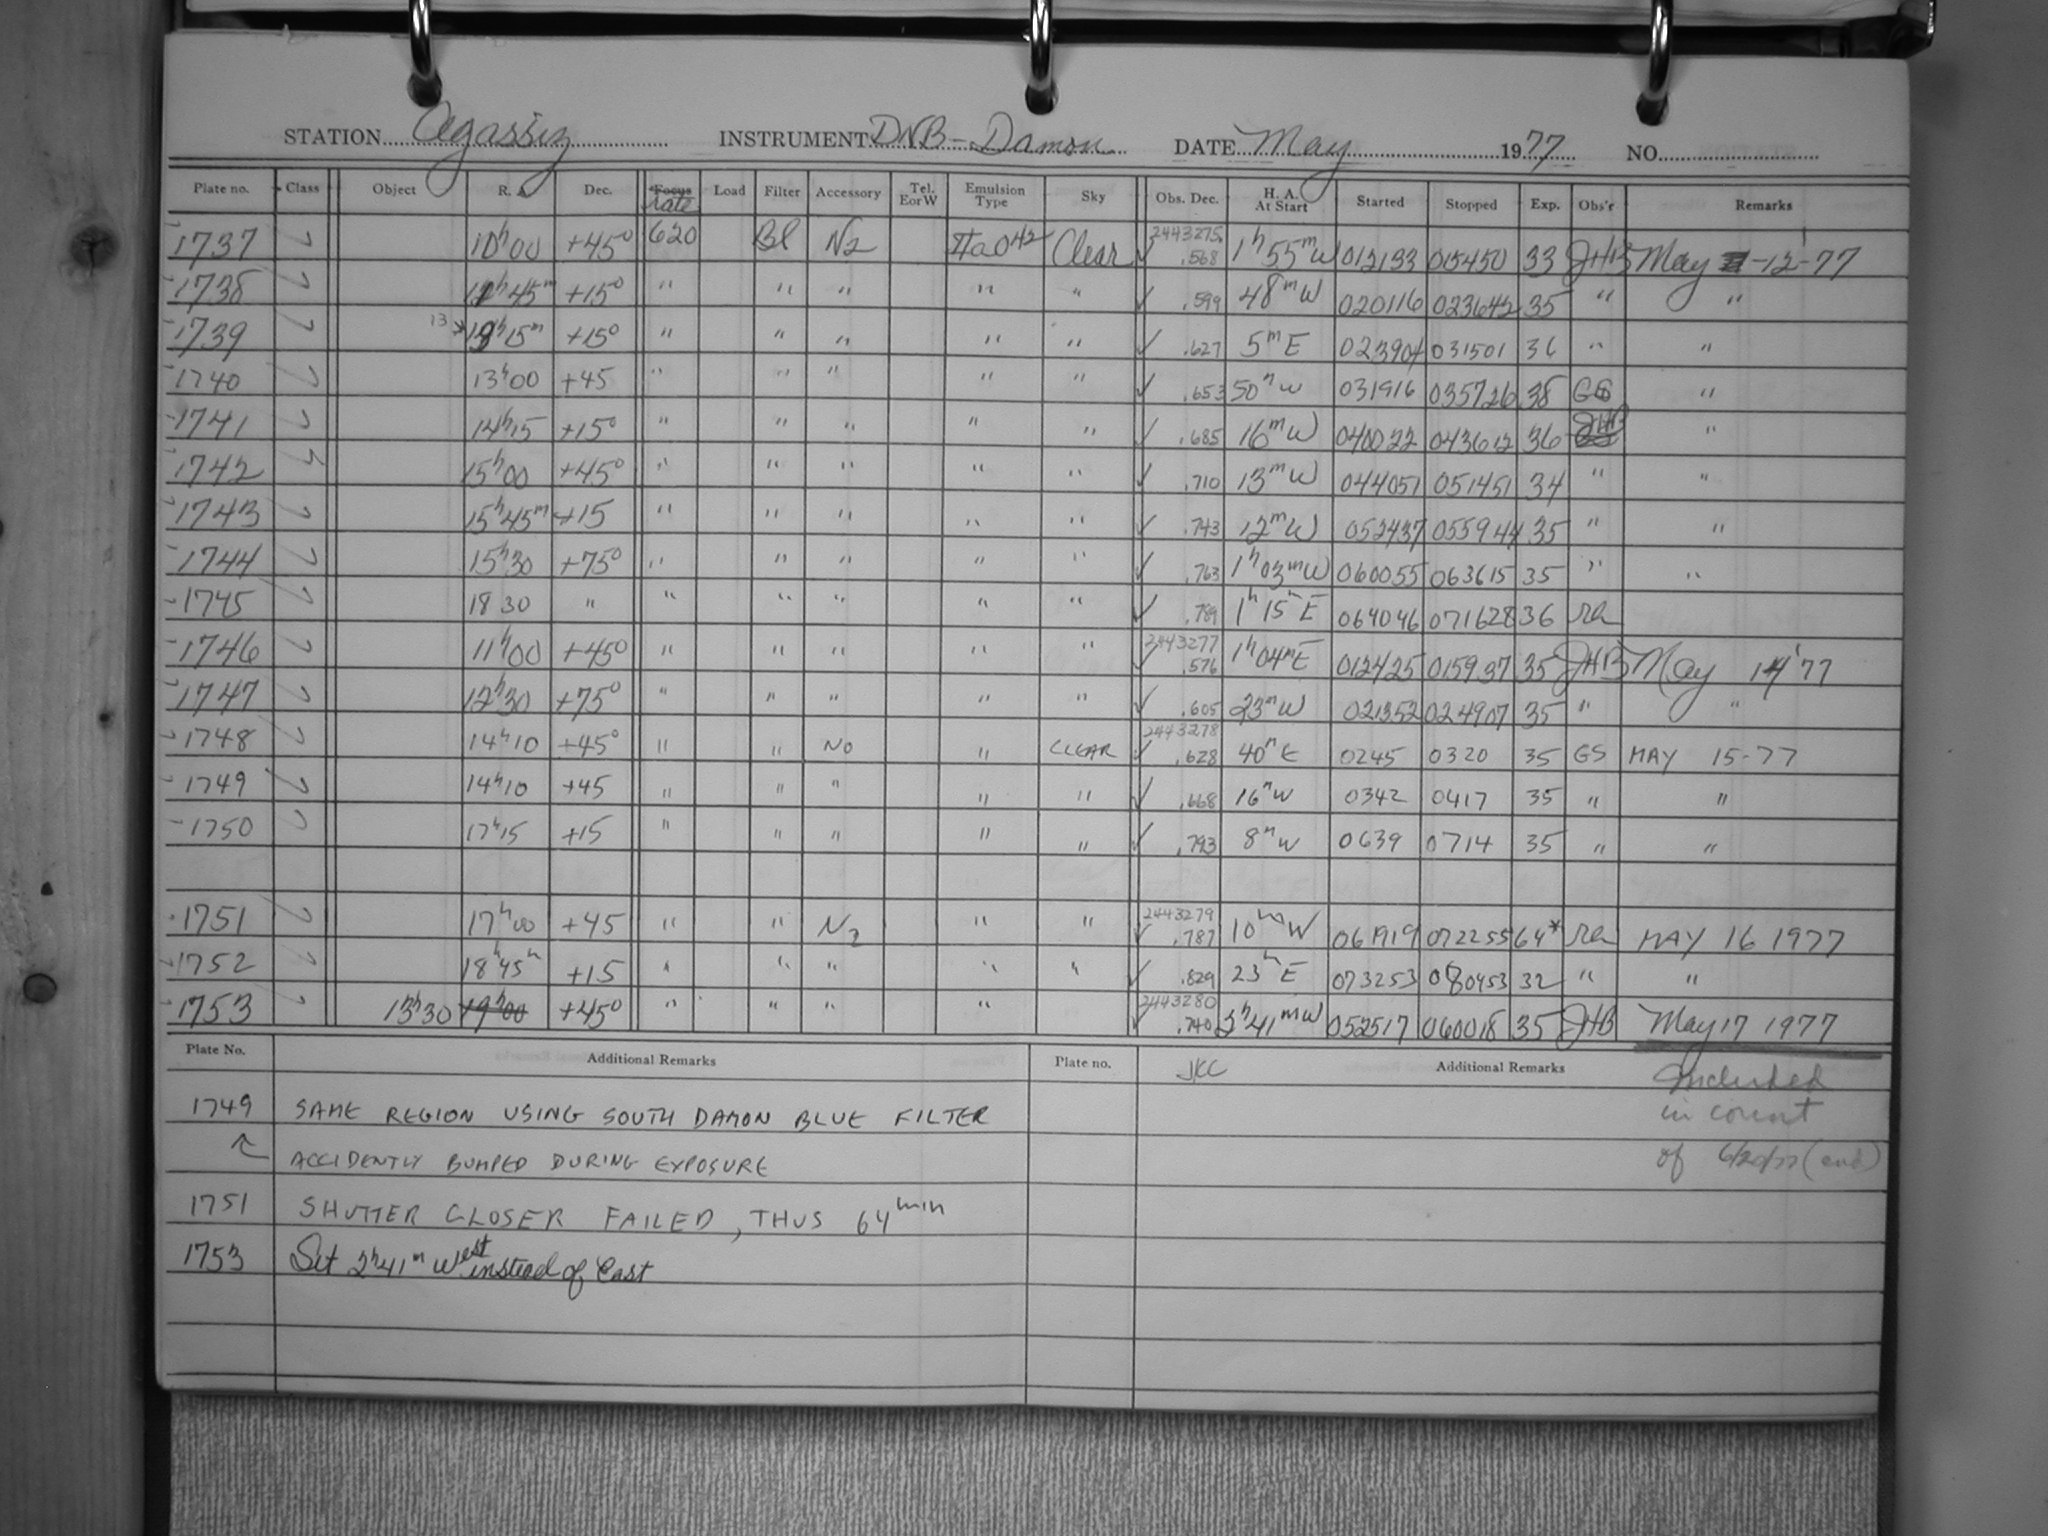 STATION Agassiz INSTRUMENT DNB-Damon DATE May 1977 NO.
Plate no. Class Object R. A. Dec. Focus rate Load Filter Accessory Tel. EorW Emulsion Type Sky Obs. Dec. H. A. At Start Started Stopped Exp. Obs'r Remarks
1737 10h00 +45° 620 Bl N2 IIaO H2 Clear 2443275 .568 1h55mW 012133 015450 33 JHB May 12-77
1738 45m +15° " " " " " .599 48mW 020116 023642 35 " "
1739 13* 15m +15° " " " " " .627 5mE 023904 031501 36 " "
1740 13h00 +45 " " " " " .653 50mW 031916 035726 38 GS "
1741 14h15 +15° " " " " " .685 16mW 040022 043612 36 JHB "
1742 15h00 +45° " " " " " .710 13mW 044051 051451 34 " "
1743 15h45m +15 " " " " " .743 12mW 052437 055944 35 " "
1744 15h30 +75° " " " " " .763 1h03mW 060055 063615 35 " "
1745 18 30 " " " " " " .789 1h15mE 064046 071628 36 ra
1746 11h00 +45° " " " " " 2443277 .576 1h04mE 012425 015937 35 JHB May 14'77
1747 12h30 +75° " " " " " .605 23mW 021352 024907 35 " "
1748 14h10 +45° " " NO " CLEAR 2443278 .628 40mE 0245 0320 35 GS MAY 15-77
1749 14h10 +45 " " " " " .668 16mW 0342 0417 35 " "
1750 17h15 +15 " " " " " .793 8mW 0639 0714 35 " "
1751 17h00 +45 " " N2 " " 2443279 .787 10mW 061919 072255 64* ra MAY 16 1977
1752 18h45m +15 " " " " " .829 23mE 073253 080453 32 " "
1753 13h30 19h00 +45° " " " " 2443280 .740 2h41mW 052517 060018 35 JHB May 17 1977
Plate No. Additional Remarks Plate no. JKC Additional Remarks
Included
in count
of 6/20/77 (end)
1749 SAME REGION USING SOUTH DAMON BLUE FILTER
ACCIDENTLY BUMPED DURING EXPOSURE
1751 SHUTTER CLOSER FAILED, THUS 64min
1753 Set 2h41m West instead of East